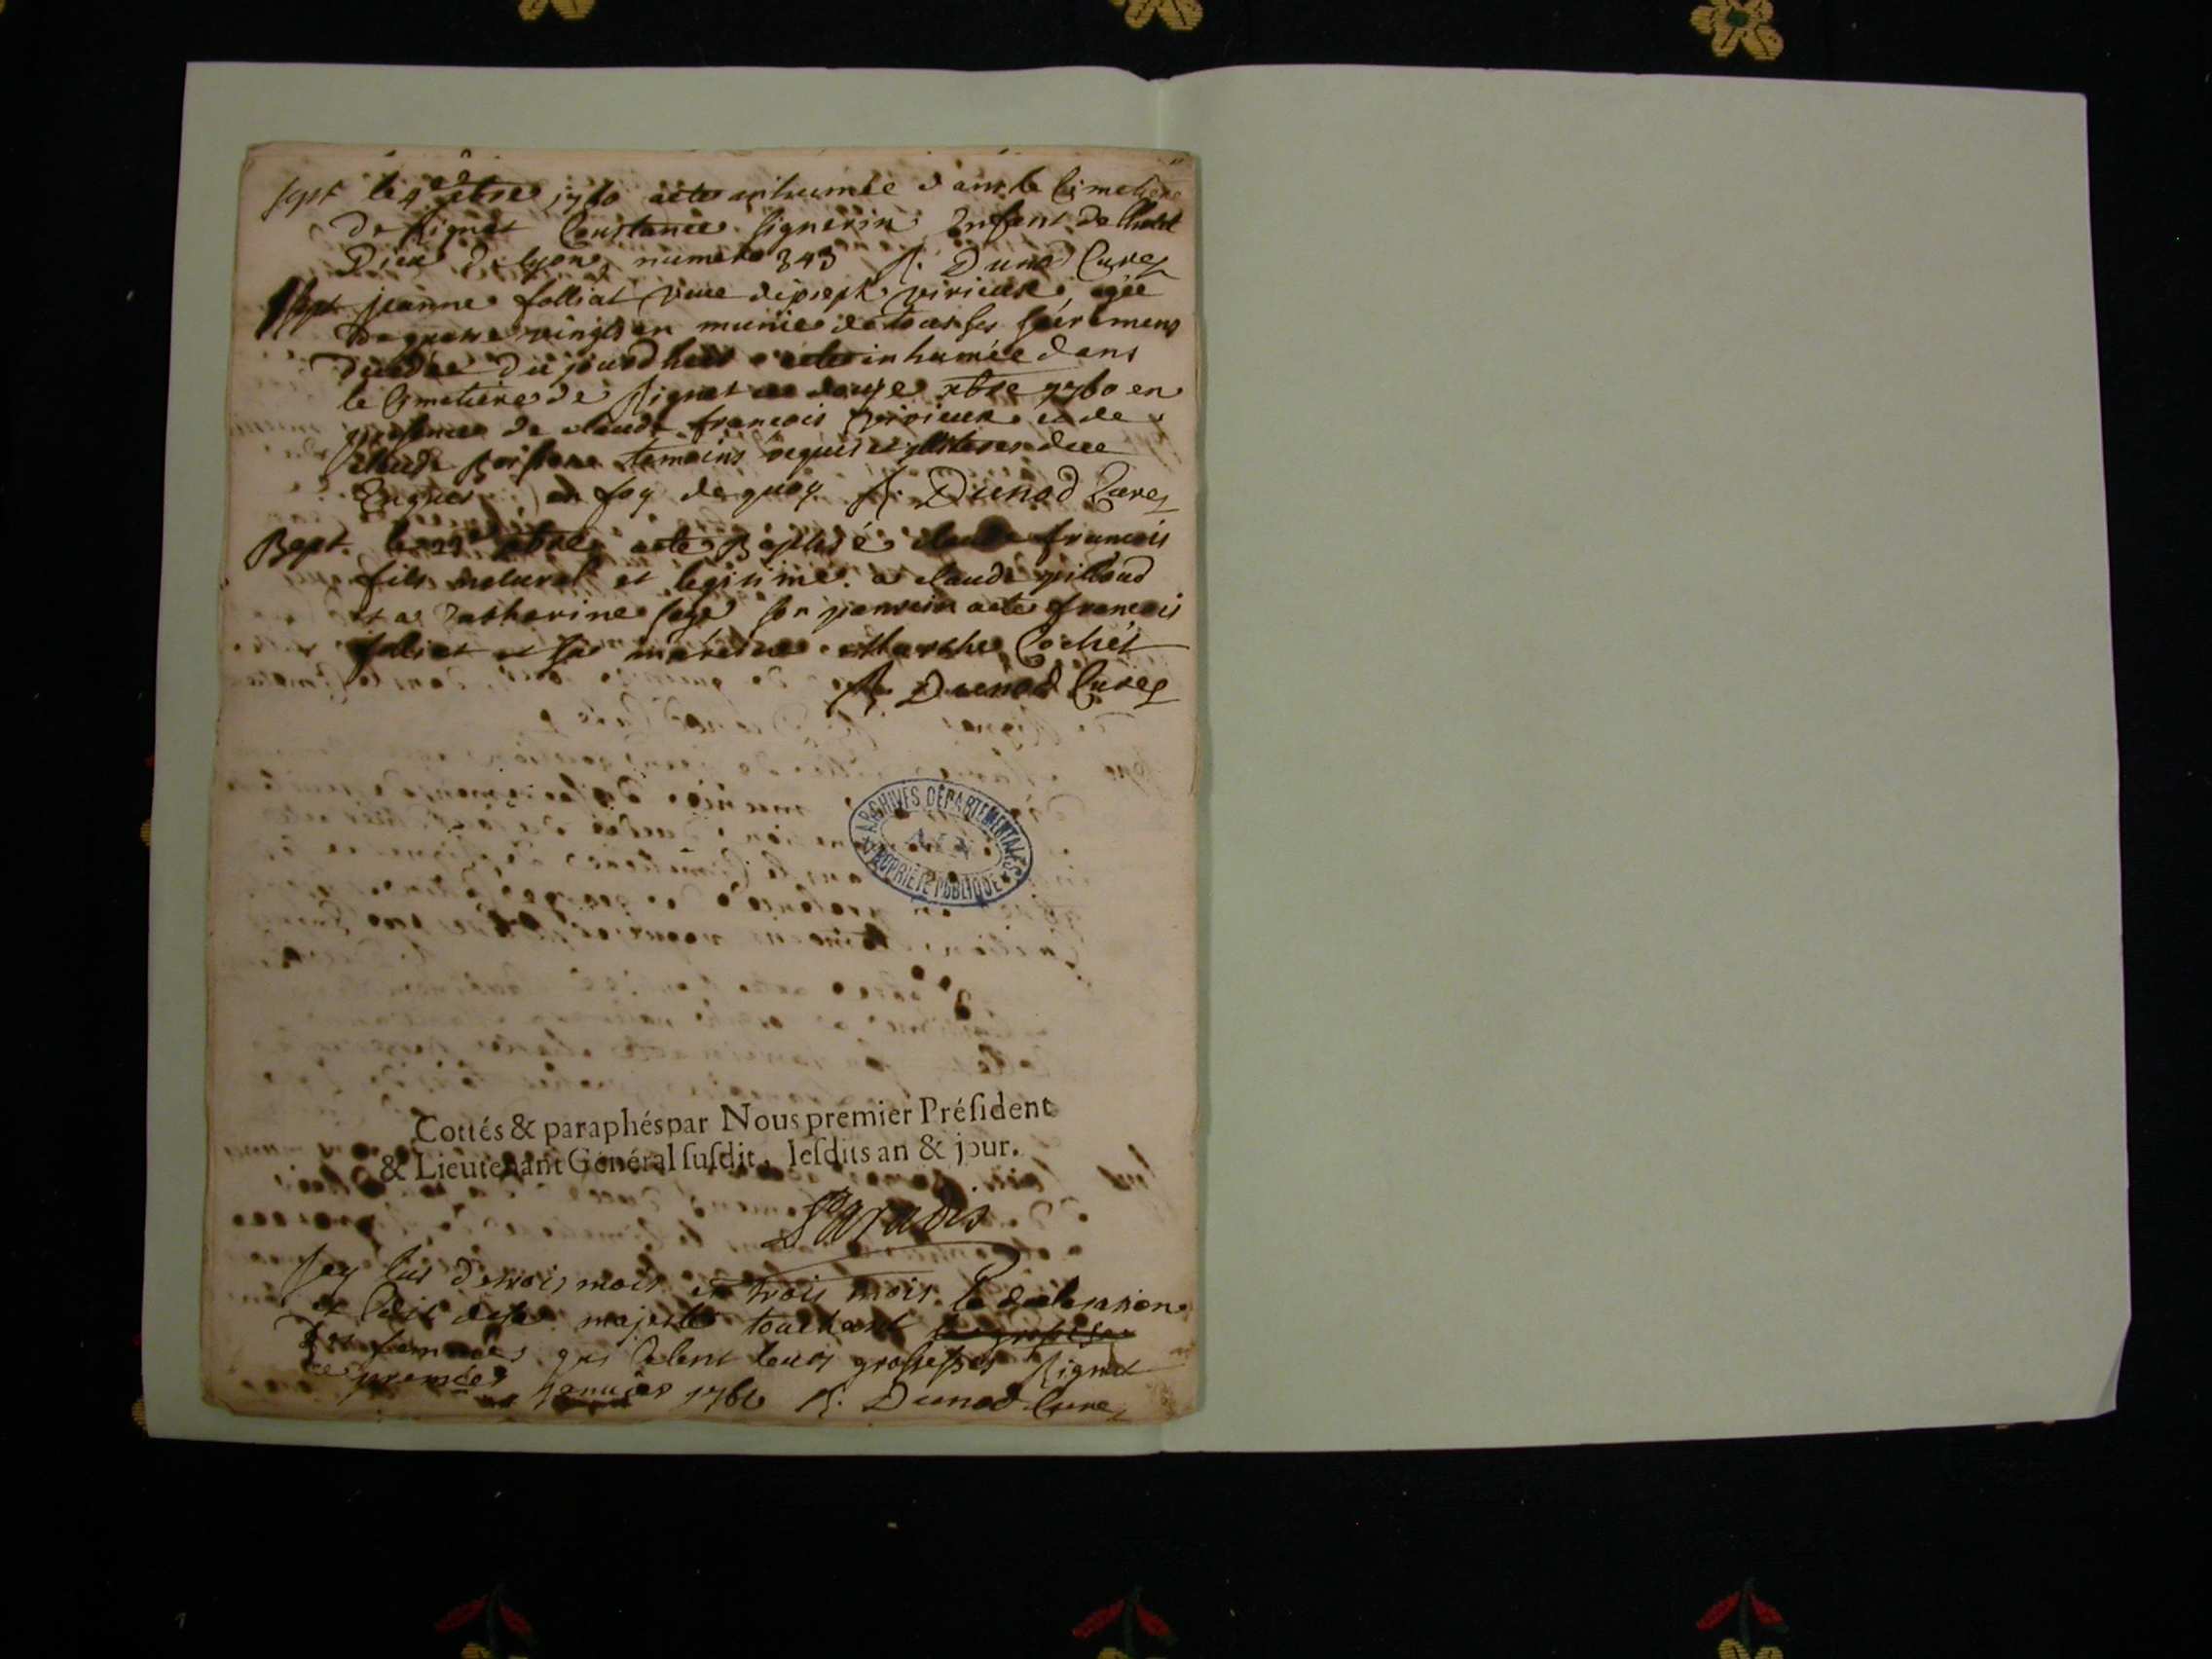 sept le 4e xbre 1760 a ete inhumée dans le Cimetiere
de Rignat Constance Signerin Enfant de l'hotel
Dieu de lyon, numero 343 R. Dunod Curé
Sept jeanne folliat veue de joseph virieux, agée
de quatre vingts an munie de tous ses sacremens
decedée du jourdhuit a ete inhumée dans
le Cimetiere de Rignat ce douze xbre 1760 en
presence de claude francois virieux et de
claude temoins requis et illiteres de ce
Enquis en foy de quoy R. Dunod Curé
Bapt. le xbre a ete Baptisé claude francois
fils naturel et legitime a claude pilloud
et a Catherine son parrein a ete francois
folliat et sa mareine Marthe Cochet
R. Dunod Curé
ARCHIVES DÉPARTEMENTALES
AIN
PROPRIÉTÉ PUBLIQUE
Cottés & paraphés par Nous premier Préſident
& Lieutenant Général ſuſdit, leſdits an & jour.
Paradis
Jey lus de trois mois en trois mois la declaration
et Edit de sa majesté touchant les grossesses
des femmes qui celent leurs grossesses Rignat
ce premier janvier 1761 R. Dunod Curé